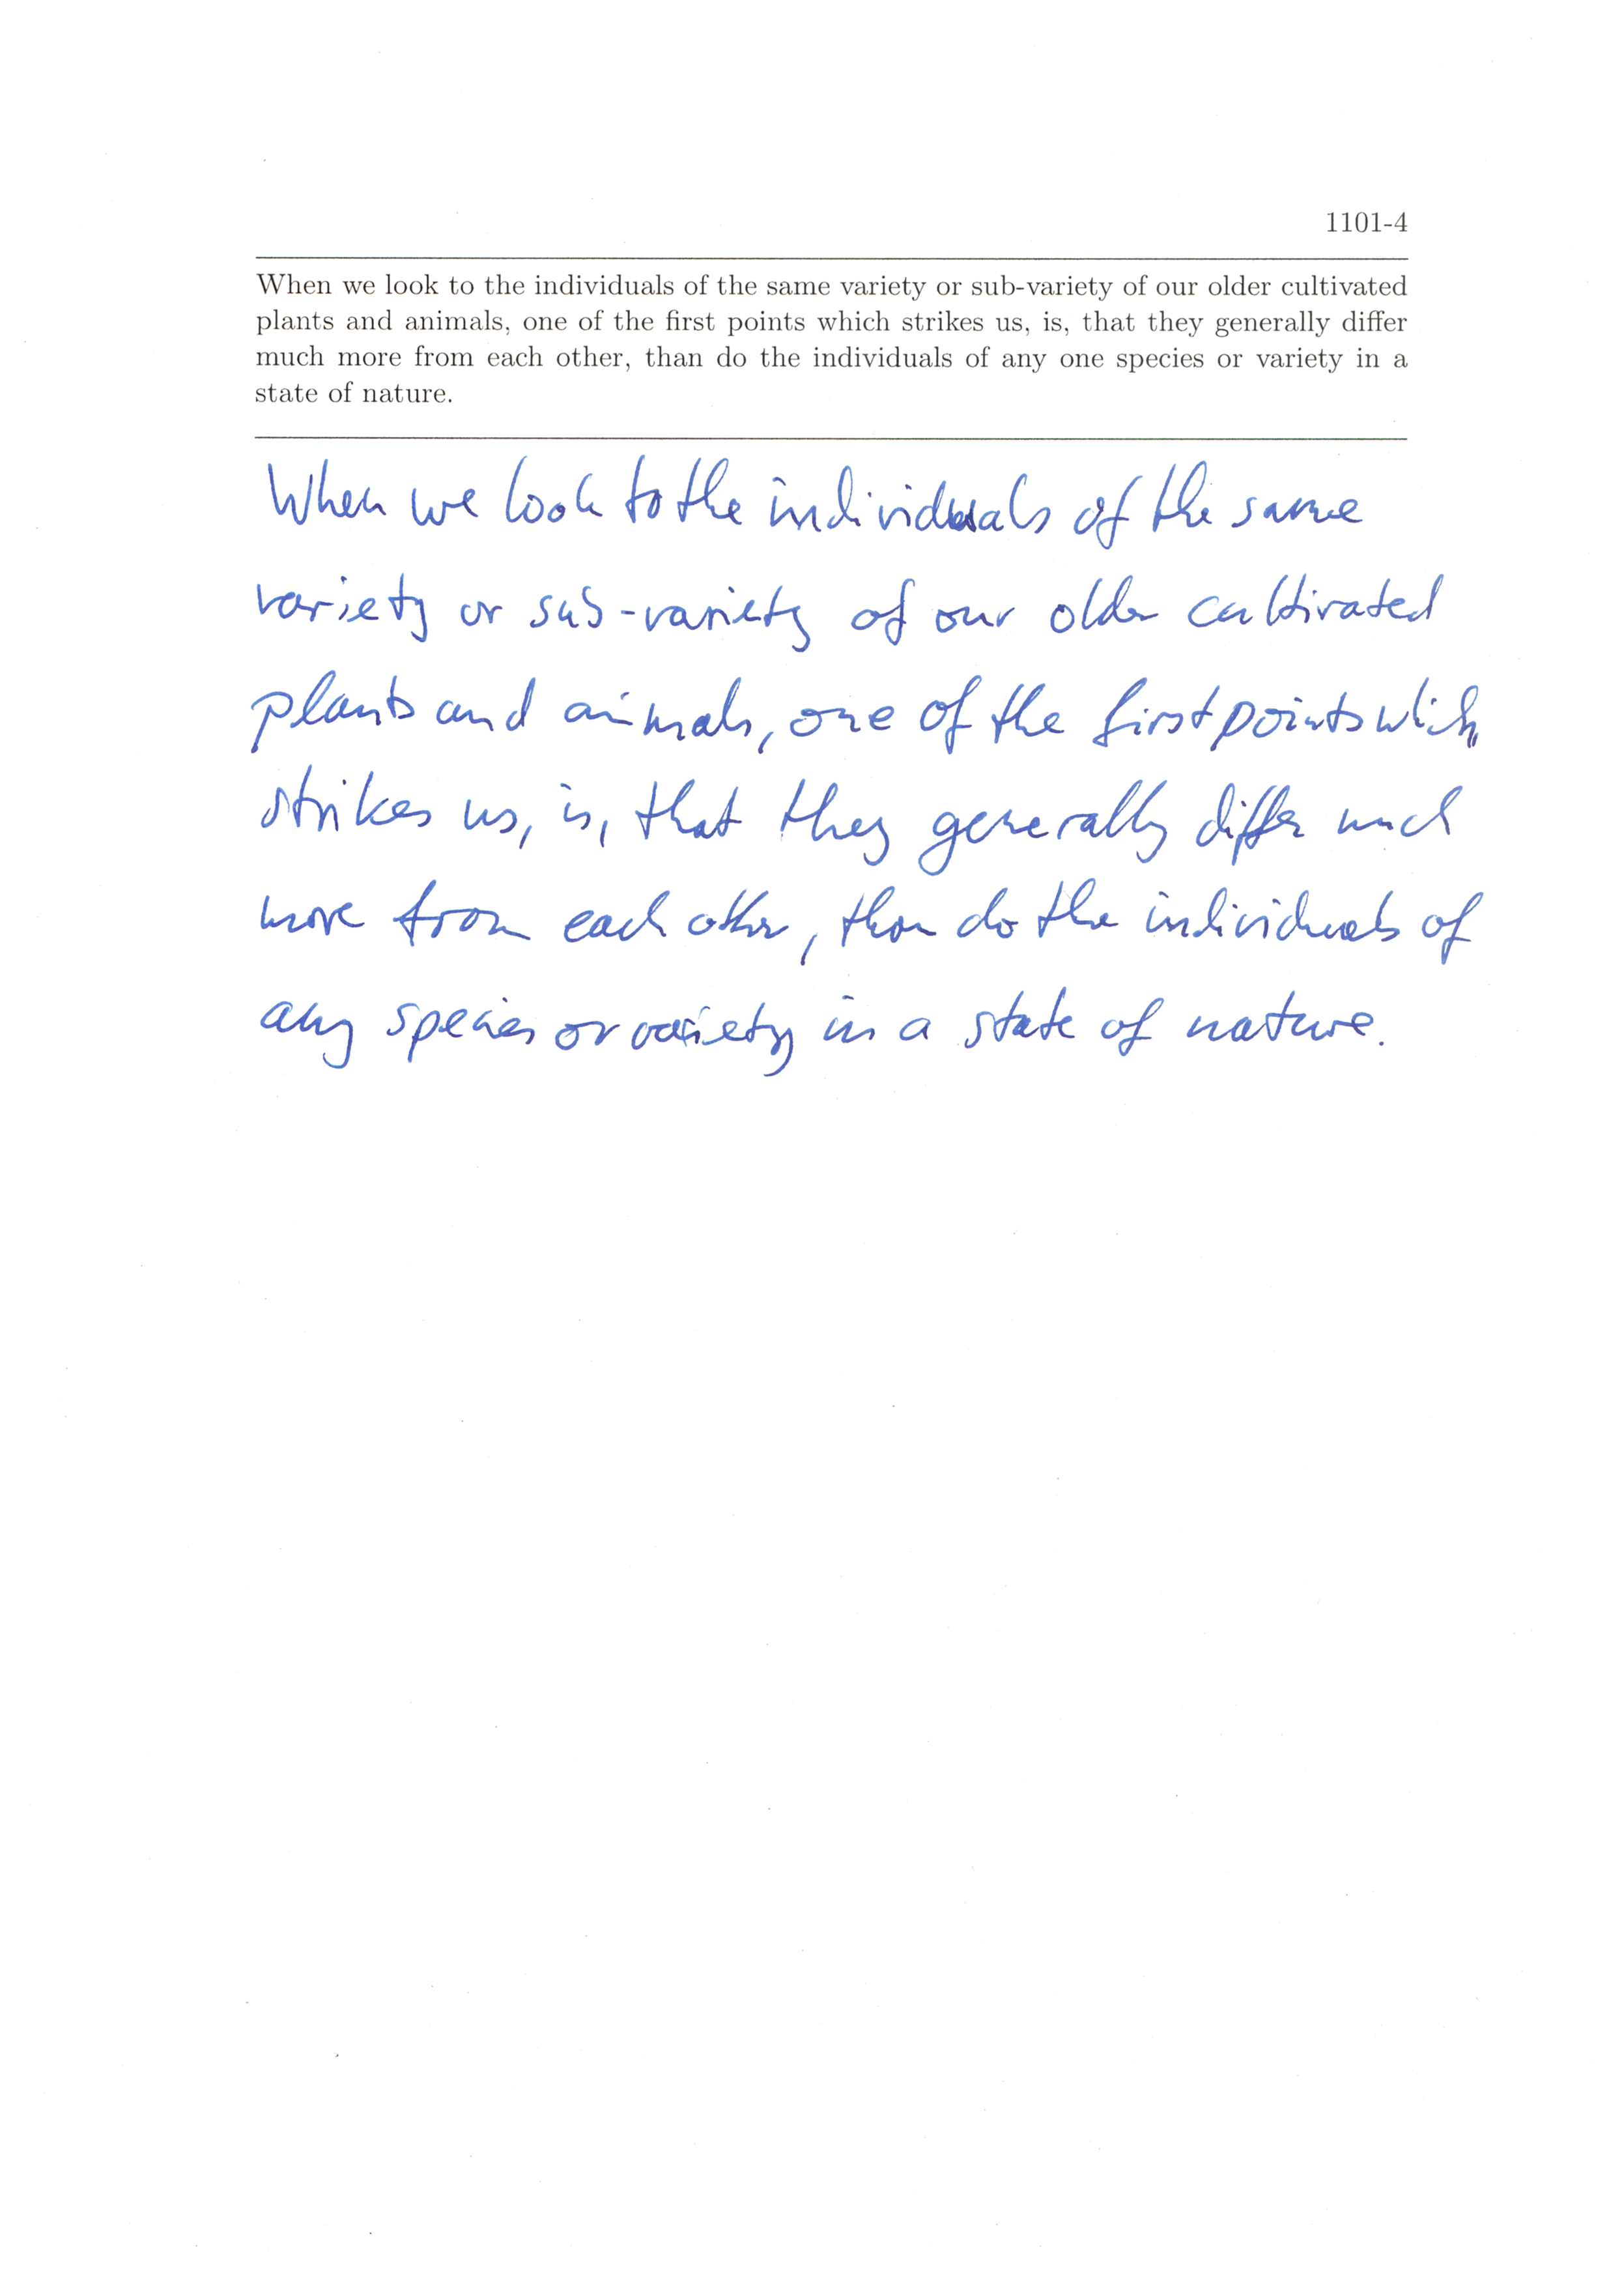 1101-4
When we look to the individuals of the same variety or sub-variety of our older cultivated
plants and animals, one of the first points which strikes us, is, that they generally differ
much more from each other, than do the individuals of any one species or variety in a
state of nature.
When we look to the individuals of the same
variety or sub-variety of our older cultivated
plants and animals, one of the first points which
strikes us, is, that they generally differ much
more from each other, than do the individuals of
any species or variety in a state of nature.